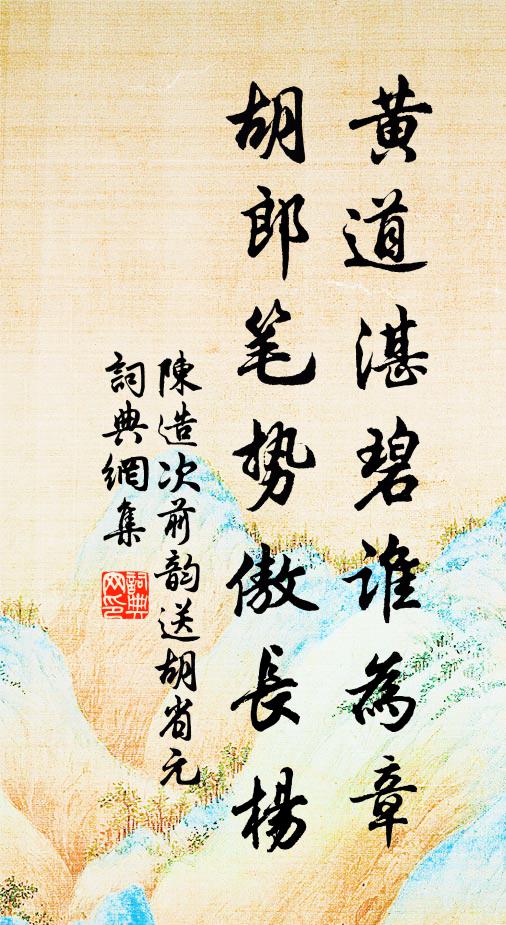 黄道湛碧谁為章
胡郎笔势傲長楊
陳造次前韵送胡省元
詞典網集
詞典
网印